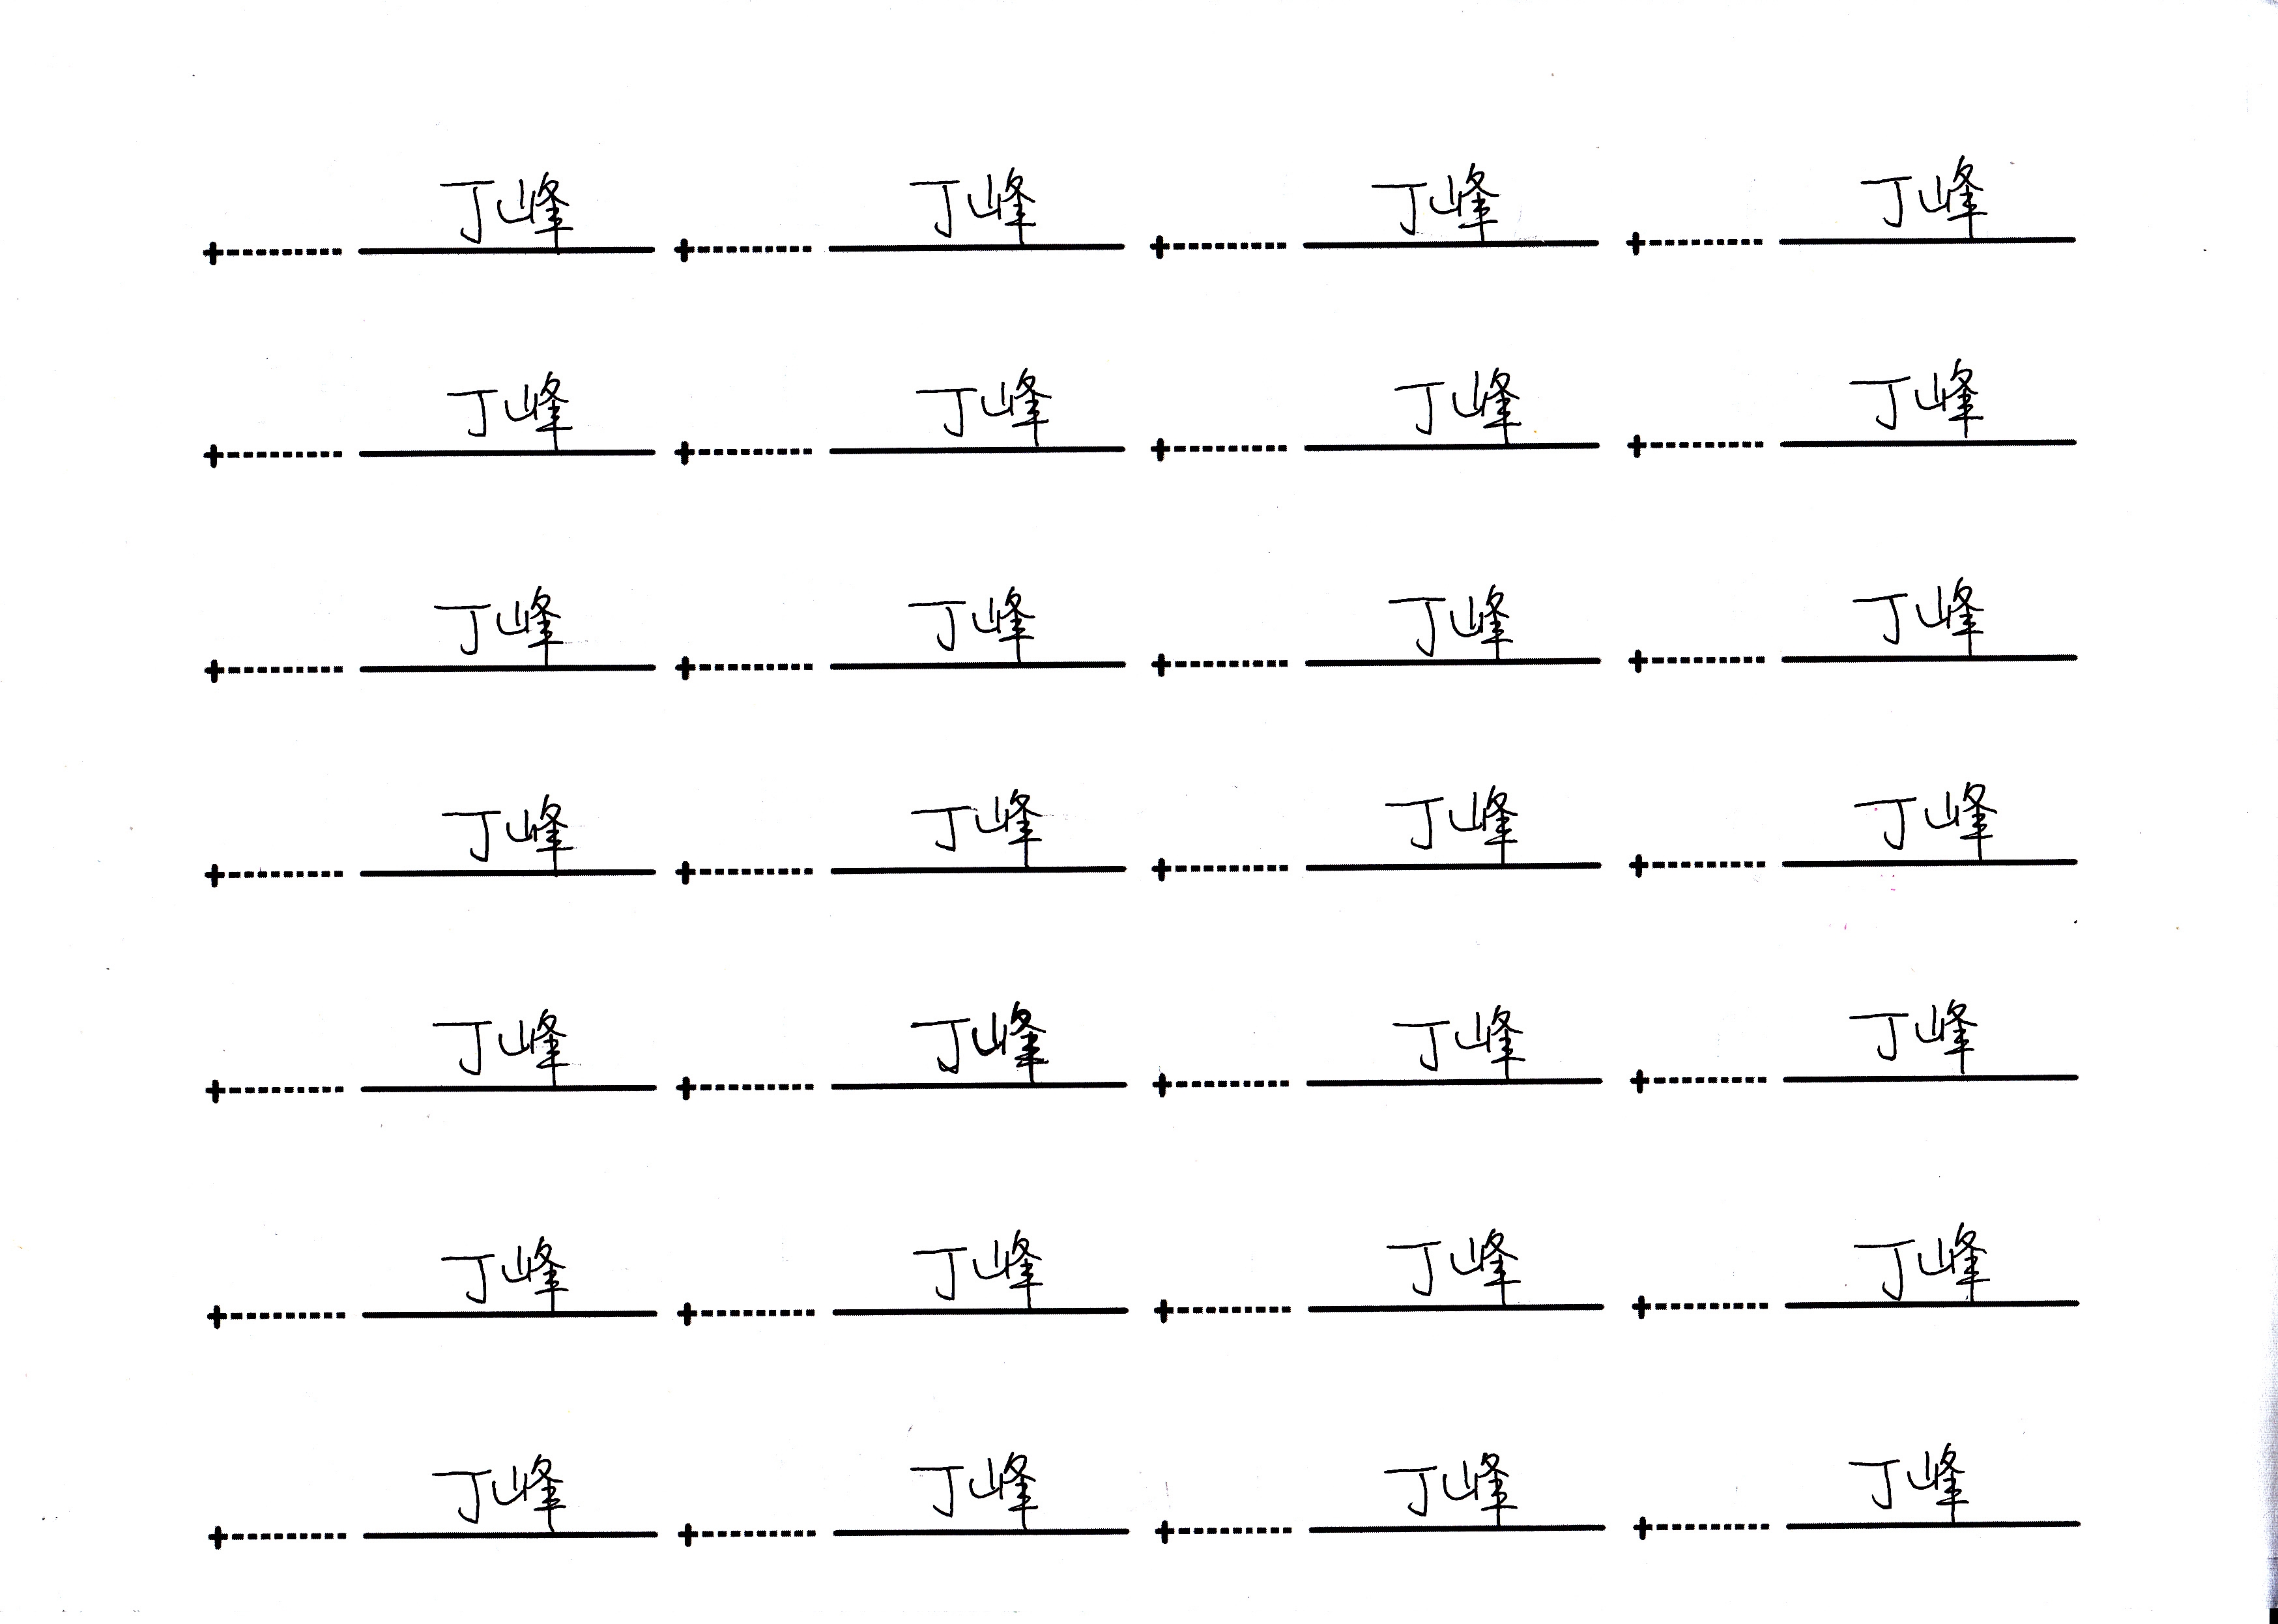 丁峰 丁峰 丁峰 丁峰
丁峰 丁峰 丁峰 丁峰
丁峰 丁峰 丁峰 丁峰
丁峰 丁峰 丁峰 丁峰
丁峰 丁峰 丁峰 丁峰
丁峰 丁峰 丁峰 丁峰
丁峰 丁峰 丁峰 丁峰